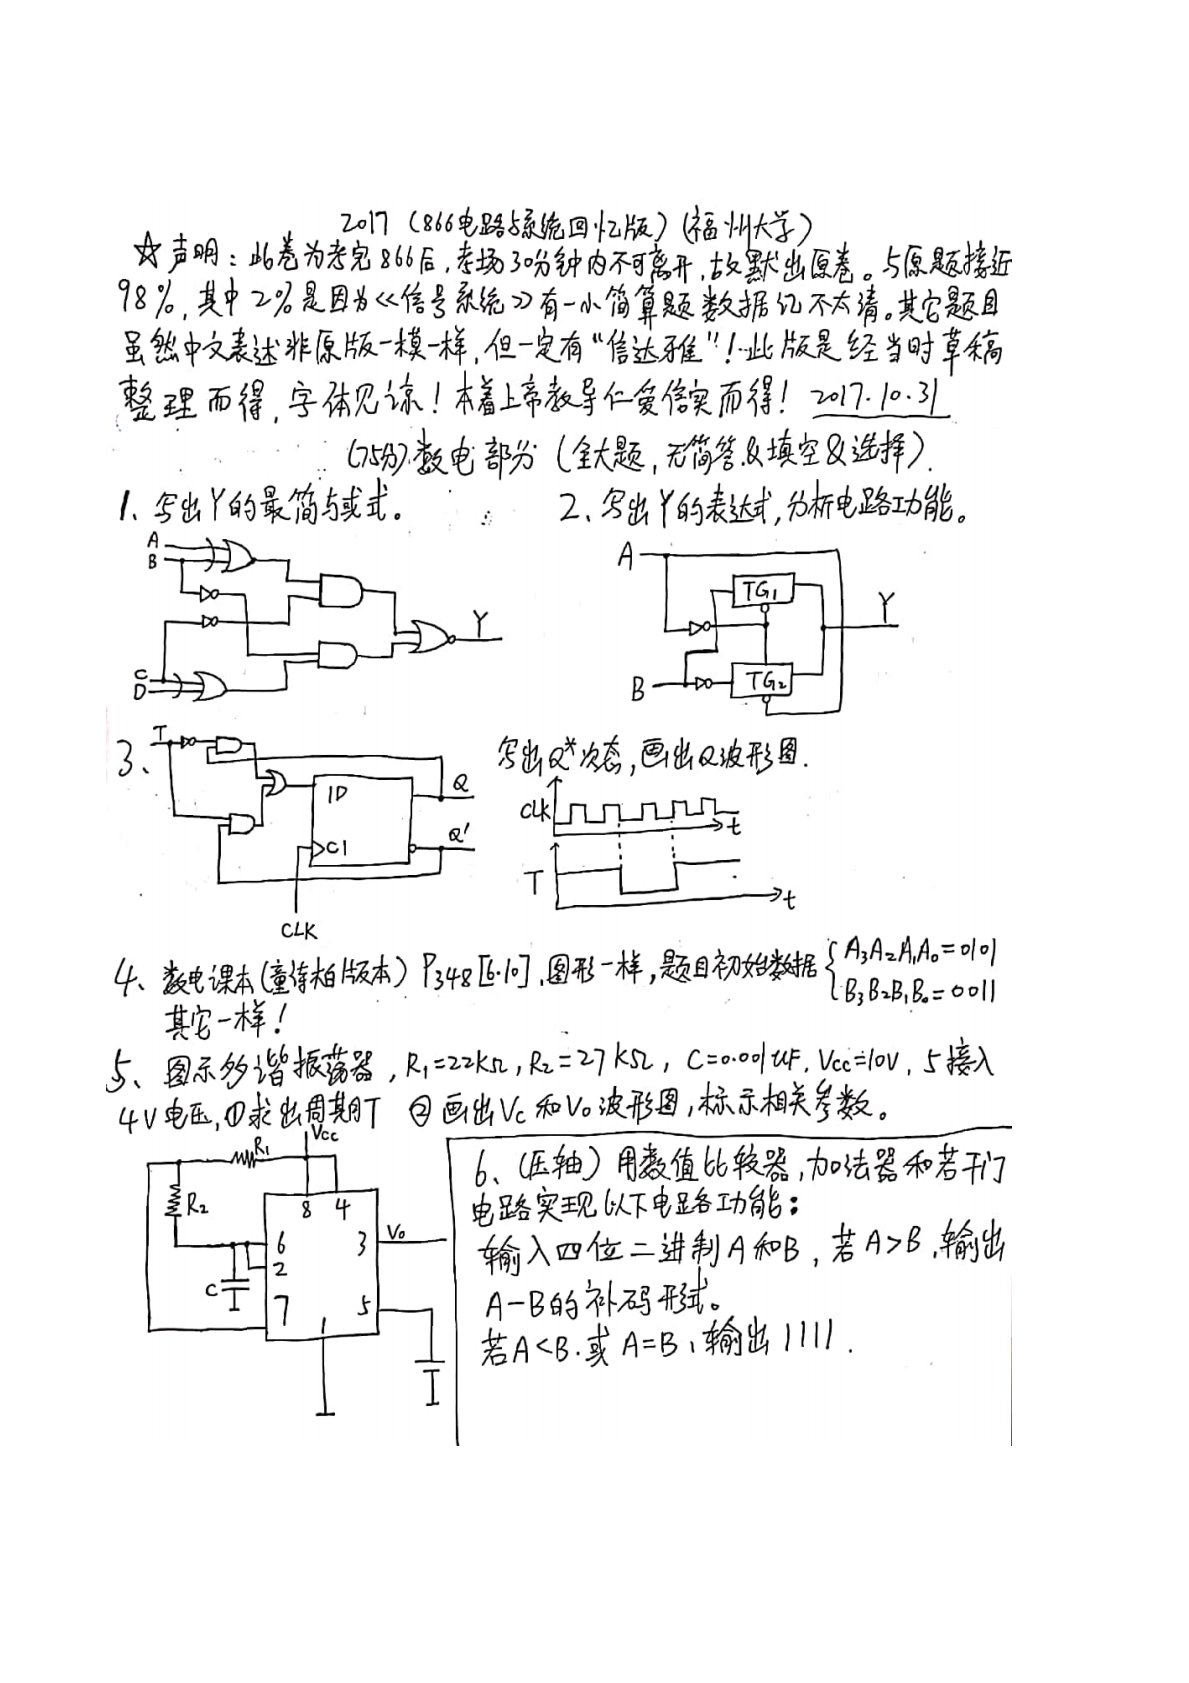 2017（866电路与系统回忆版）（福州大学）
☆声明：此卷为考完866后，考场30分钟内不可离开，故默出原卷。与原题接近
98%，其中2%是因为《信号系统》有一小简算题数据记不太清。其它题目
虽然中文表述非原版一模一样，但一定有“信达雅”！此版是经当时草稿
整理而得，字体见谅！本着上帝教导仁爱信实而得！ 2017.10.31
（75分）数电部分（全大题，无简答&填空&选择）.
1、写出Y的最简与或式。
A
B
C
D
Y
2、写出Y的表达式，分析电路功能。
A
TG1
Y
B
TG2
3、
T
1D
C1
Q
Q'
CLK
写出Q*次态，画出Q波形图.
CLK
t
T
t
4、数电课本（童诗柏版本）P348[6.10]，图形一样，题目初始数据{A3A2A1A0=0101
B3B2B1B0=0011
其它一样！
5、图示多谐振荡器，R1=22kΩ，R2=27kΩ，C=0.001uF，Vcc=10V，5接入
4V电压，①求出周期T ②画出Vc和Vo波形图，标示相关参数。
R1
Vcc
R2
8 4
6
2
7
3
5
1
C
Vo
6、（压轴）用数值比较器，加法器和若干门
电路实现以下电路功能：
输入四位二进制A和B，若A>B，输出
A-B的补码形式。
若A<B.或A=B，输出1111.